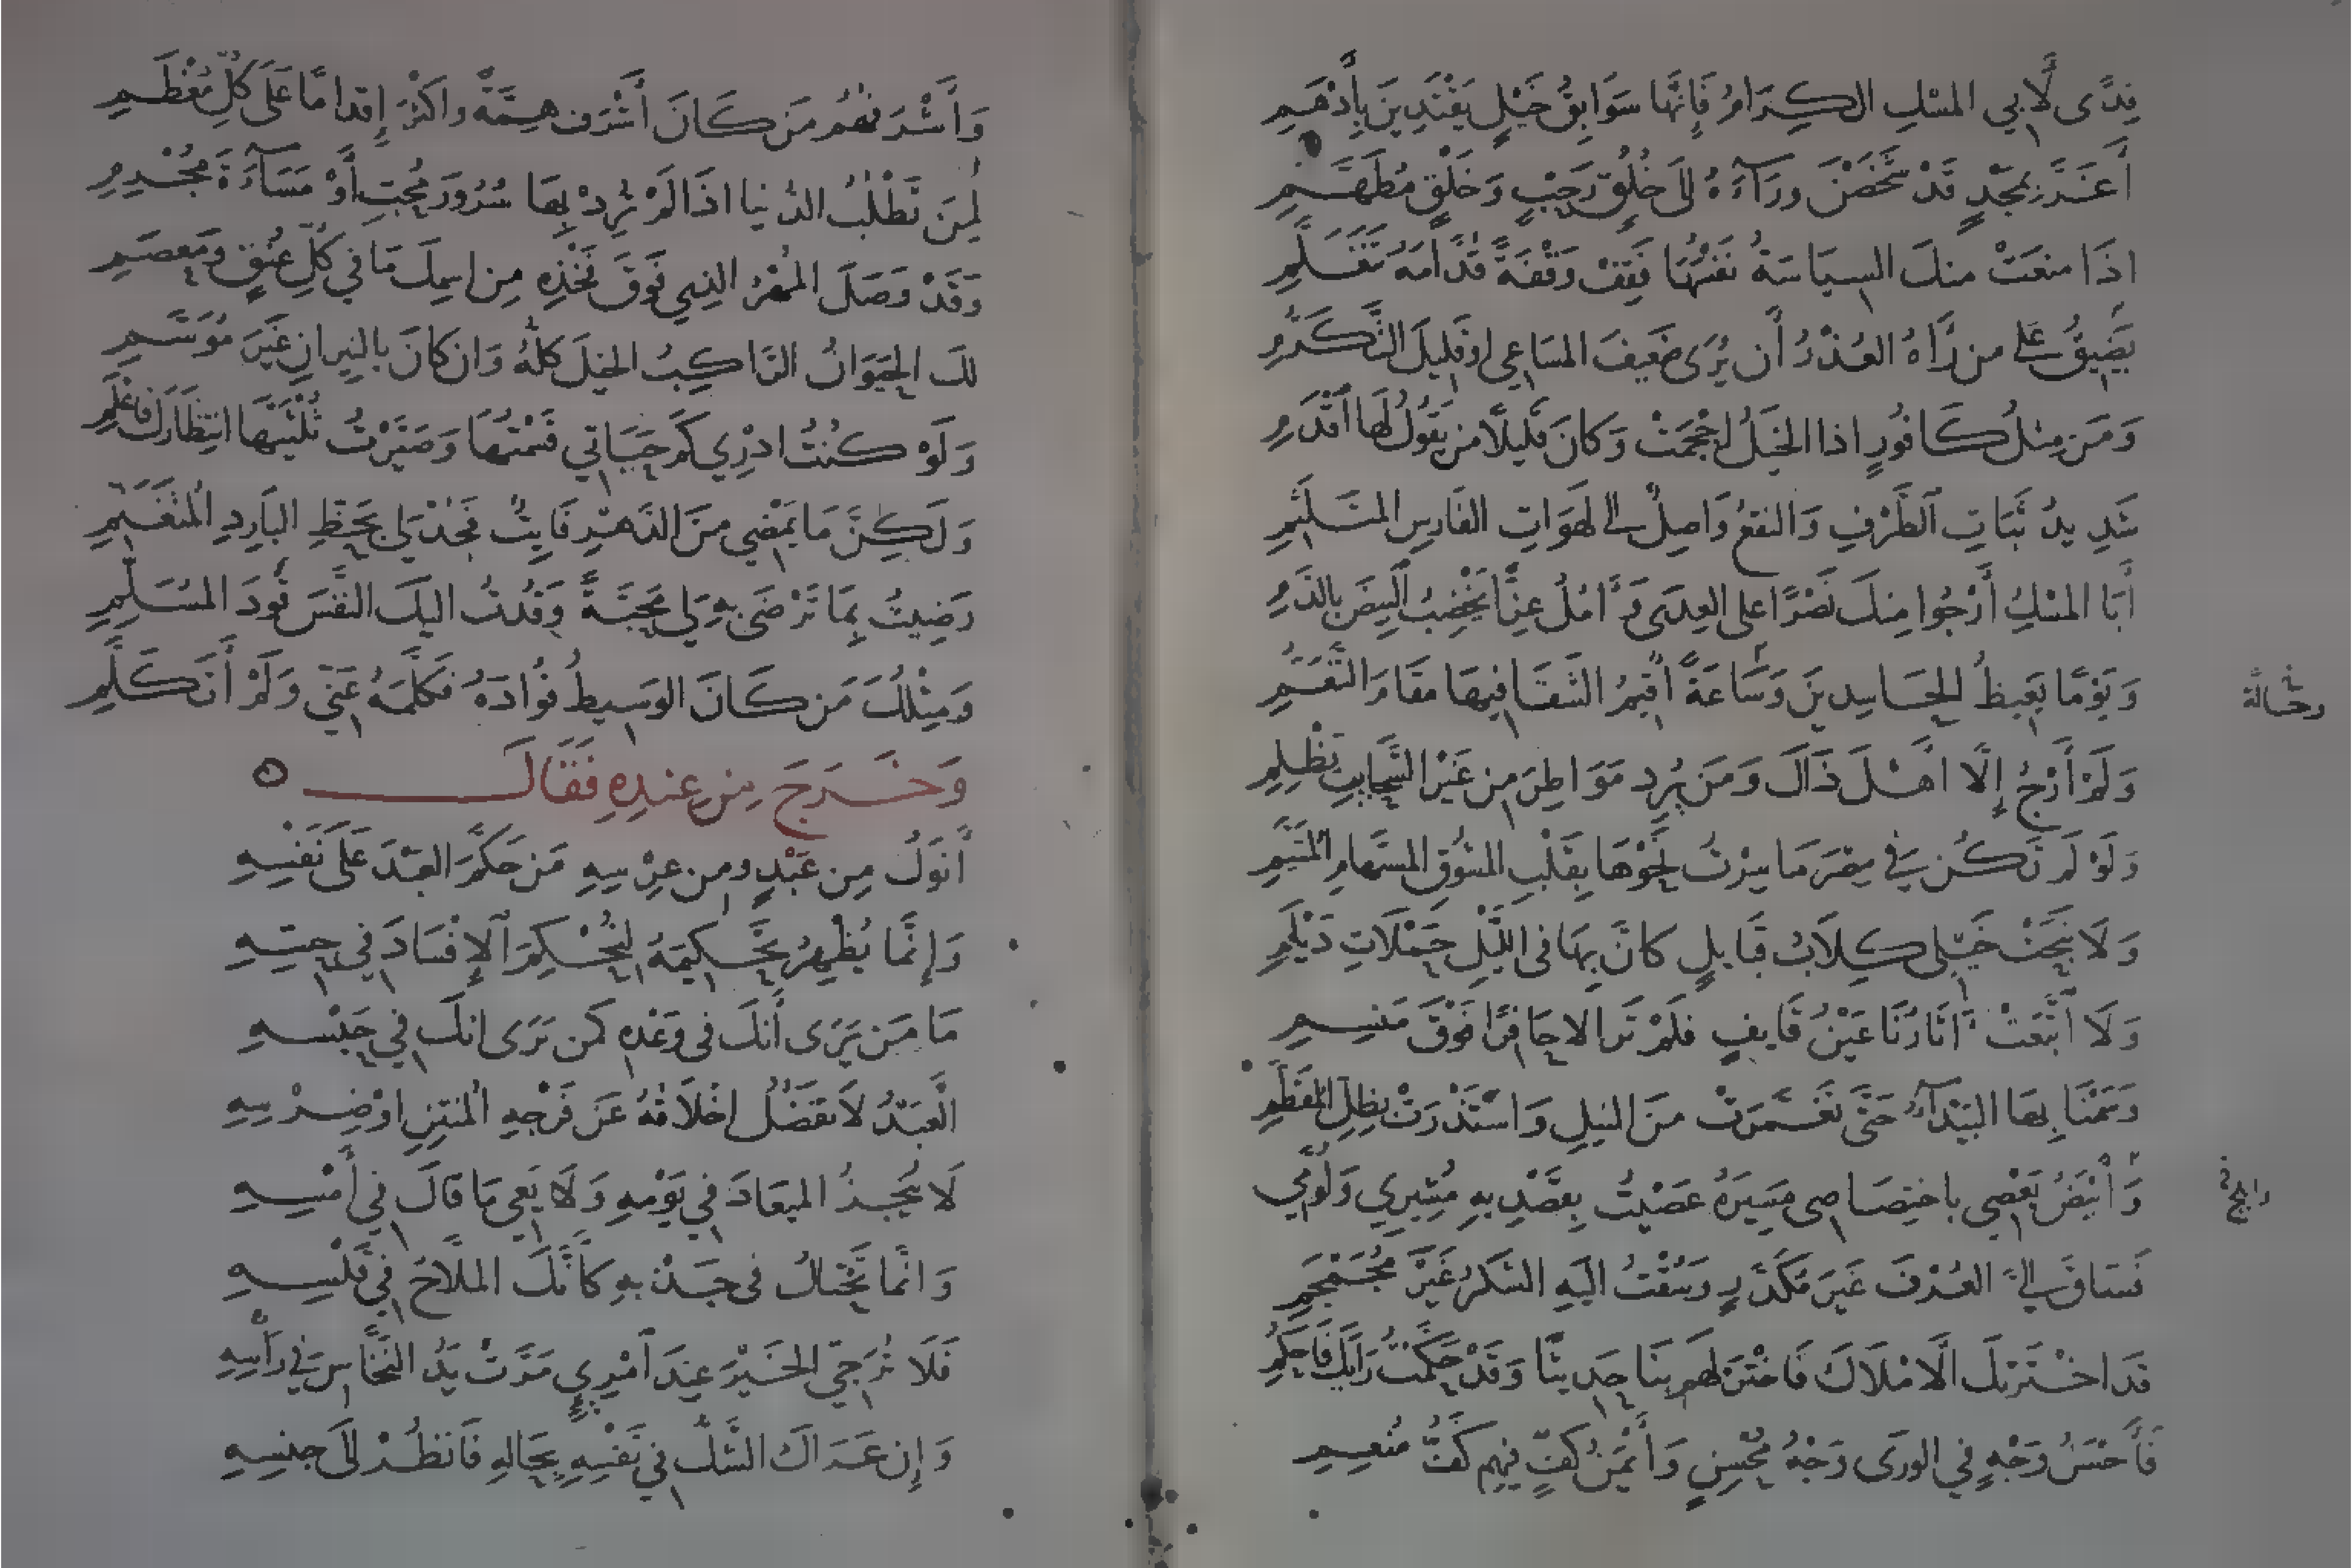 فِدًى لأَبي المسْكِ الكِرَامُ فَإِنَّهَا سَوَابِقُ خَيْلٍ يَهْتَدِينَ بِأَدْهَمِ
أَغَرَّ بِمَجْدٍ قَدْ شَخَصْنَ ورَآءَهُ الَى خُلُقٍ رَحْبٍ وَخَلْقٍ مُطَهَّمِ
اذَا منعَتْ منكَ السِيَاسَةُ نَفْسَهَا فَقِفْ وَقْفَةً قُدَّامَهُ تَتَعَلَّمِ
يَضِيقُ عَلَى من رَّآهُ العُذْرُ أَن يُرَى ضَعِيفَ المسَاعِي اوقَلِيلَ التَّكَرُّمِ
وَمَن مِثلُ كَافُورٍ اذا الخَيْلُ احْجَمَتْ وَكَانَ قَلِيلاً من يَقُولُ لَهَا اَقْدَمِ
شَدِيدُ ثَبَاتِ الطَّرْفِ وَالنقعُ وَاصِلٌ الى لَهَوَاتِ الفَارِسِ المتَلَثِّمِ
أَبَا المسْكِ أَرْجُوا مِنكَ نَصْرًا على العِدَى وَآمُلُ عِزًّا يَخْضِبُ البِيضَ بِالدَمِ
وَيَوْمًا يَغِيظُ الحَاسِدِينَ وَسَاعَةً اُقِيمُ الشَقَا فِيهَا مقَامَ التَّنَعُّمِ
وحَالَةً
وَلَمْ أَرْجُ إِلَّا اَهْلَ ذَاكَ وَمَن يُرِد مَوَاطِرَ مِن غَيْرِ السَّحَايِبِ يَظْلِمِ
وَلَوْ لَم تَكُن في مِصْرَ مَا سِرْتُ نَحْوَهَا بِقَلْبِ المشُوقِ المسْتهامِ المُتَيَّمِ
وَلَا نَبَحَتْ خَيْلي كِلَابُ قَبَايلٍ كَانَّ بِهَا فى اللَيْلِ حَمْلَاتِ دَيْلَمِ
وَلَا اَتْبَعَتْ آثَارَنَا عَيْنُ قَايفٍ فلَمْ تَرَ الا حَافِرًا فَوْقَ مَنسِمِ
وَسَمْنَا بِهَا البَيْدَآءَ حَتَّى تَغَمَّرَتْ مِنَ النيلِ وَاسْتَذْرَتْ بِظِلِّ المُقَطَّمِ
وَأَبْيَضُ يَعْصِي بِاختِصَاصِى مُشِيرَهُ عَصَيْتُ بِقَصْدِيهِ مُشِيرِي وَلُوَّمِي
وابلج
فَسَاقَ الىَّ العُرْفَ غَيْرَ مُكَدَّرٍ وَسُقْتُ اليَهِ الشكرَ غَيْرَ مُجَمْجَمِ
قَدَ اخْتَرْتكَ الاَمْلَاكَ فَاخْتَرْ لَهُم بِنَا حَدِيثًا وَقَدْ حَكَّمْتُ رَايَكَ فَاحْكُمِ
فَأَحْسَنُ وَجْهٍ فِي الورَى وَجْهُ مُحْسِنٍ وَأَيْمَنُ كَفٍّ فِيهِم كَفُّ مُنعِمِ
وَأَشْرَفُهُم مَن كَانَ أَشْرَفَ هِمَّةً واَكْثَرَ إِقدامًا عَلَى كُلِّ مُعْظَمِ
لِمَن تَطْلُبُ الدُنيَا اذَا لَمْ تُرِدْ بِهَا سُرُورَ مُحِبٍّ أَوْ مَسَآءَةَ مُجْرِمِ
وَقَدْ وَصَلَ المُهْرُ الذِي فَوقَ فَخْذِهِ مِنِ اسمِكَ مَا فِي كُلِّ عُنْقٍ وَمِعصَمِ
لكَ الحَيَوَانُ الرَاكِبُ الخيلَ كلُّهُ وَان كانَ بالنِيرانِ غَيرَ مُوَسَّمِ
وَلَوْ كُنتُ ادْرِي كَم حَيَاتِي قَسَمْتُهَا وَصَيَّرْتُ ثُلْثَيْهَا انتِظَارَكَ فَاعْلَمِ
وَلَكِنَّ مَا يَمْضِي مِنَ الدَهْرِ فَايِتٌ فَجُدْ لِي بِحَظِّ البَادِرِ المُتَغَنِّمِ
رَضِيتُ بِمَا تَرْضَى بِهِ لِي مَحَبَّةً وَقُدتُ اليكَ النفْسَ قَوْدَ المسَلِّمِ
وَمِثْلُكَ مَن كَانَ الوَسِيطُ فُؤادَهُ فَكَلَّمَهُ عَنِّي وَلَمْ أَتَكَلَّمِ
وَخَرَجَ مِن عِندِهِ فَقَالَ
اَنوَكُ مِن عَبْدٍ ومِن عِرْسِهِ مَن حَكَّمَ العَبْدَ عَلَى نَفْسِهِ
وَإِنَّمَا يُظْهِرُ تَحْكِيمُهُ لِيُحْكِمَ الاِفْسَادَ فِي حِسِّهِ
مَا مَن يَرَى أَنكَ فى وَعْدِهِ كَمن يَرَى انكَ فِي حَبْسِهِ
الْعَبْدُ لاَ تفضُلُ اخْلاَقُهُ عَن فَرْجِهِ المُنتِنِ اوْ ضِرْسِهِ
لَا يُنْجِزُ الميعَادَ فِي يَوْمِهِ وَلَا يَعِي مَا قَالَ فِي أَمْسِهِ
وَانَّمَا تَحْتَالُ فى جَذْبِهِ كَأَنَّكَ المَلَّاحُ فِي قَلْسِهِ
فَلَا تُرَجِّي الخَيْرَ عِندَ اَمْرِيٍ مَرَّتْ يَدُ النَخَّاسِ فِي رَأْسِهِ
وَإِن عَرَاكَ الشَّكُّ فِي نَفْسِهِ بِحَالِهِ فَانظُرْ الَى جِنسِهِ